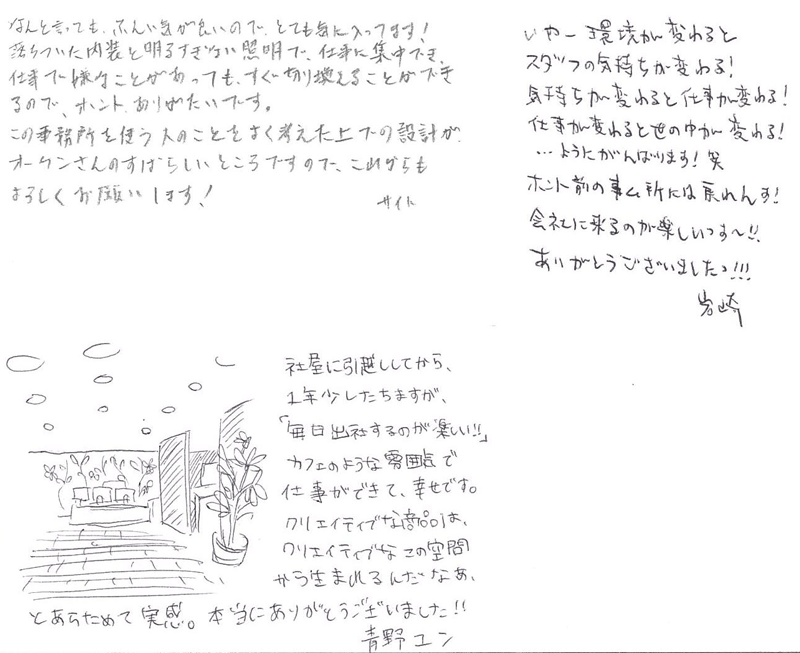 なんと言っても、ふんい気が良いので、とても気に入ってます!
落ちついた内装と明るすぎない照明で、仕事に集中でき、
仕事で嫌なことがあっても、すぐ切り換えることができ
るので、ホント、ありがたいです。
この事務所を使う人のことをよく考えた上での設計が、
オークンさんのすばらしいところですので、これからも
よろしくお願いします!
サイト
いやー環境が変わると
スタッフの気持ちが変わる!
気持ちが変わると仕事が変わる!
仕事が変わると世の中が変わる!
…ようにがんばります!笑
ホント前の事ム所には戻れんす!
会社に来るのが楽しいっす〜!!
ありがとうございましたっ!!!
岩崎
社屋に引越ししてから、
1年少したちますが、
「毎日出社するのが楽しい!!」
カフェのような雰囲気で
仕事ができて、幸せです。
クリエイティブな商品は、
クリエイティブなこの空間
から生まれるんだなあ、
とあらためて実感。本当にありがとうございました!!
青野ユン